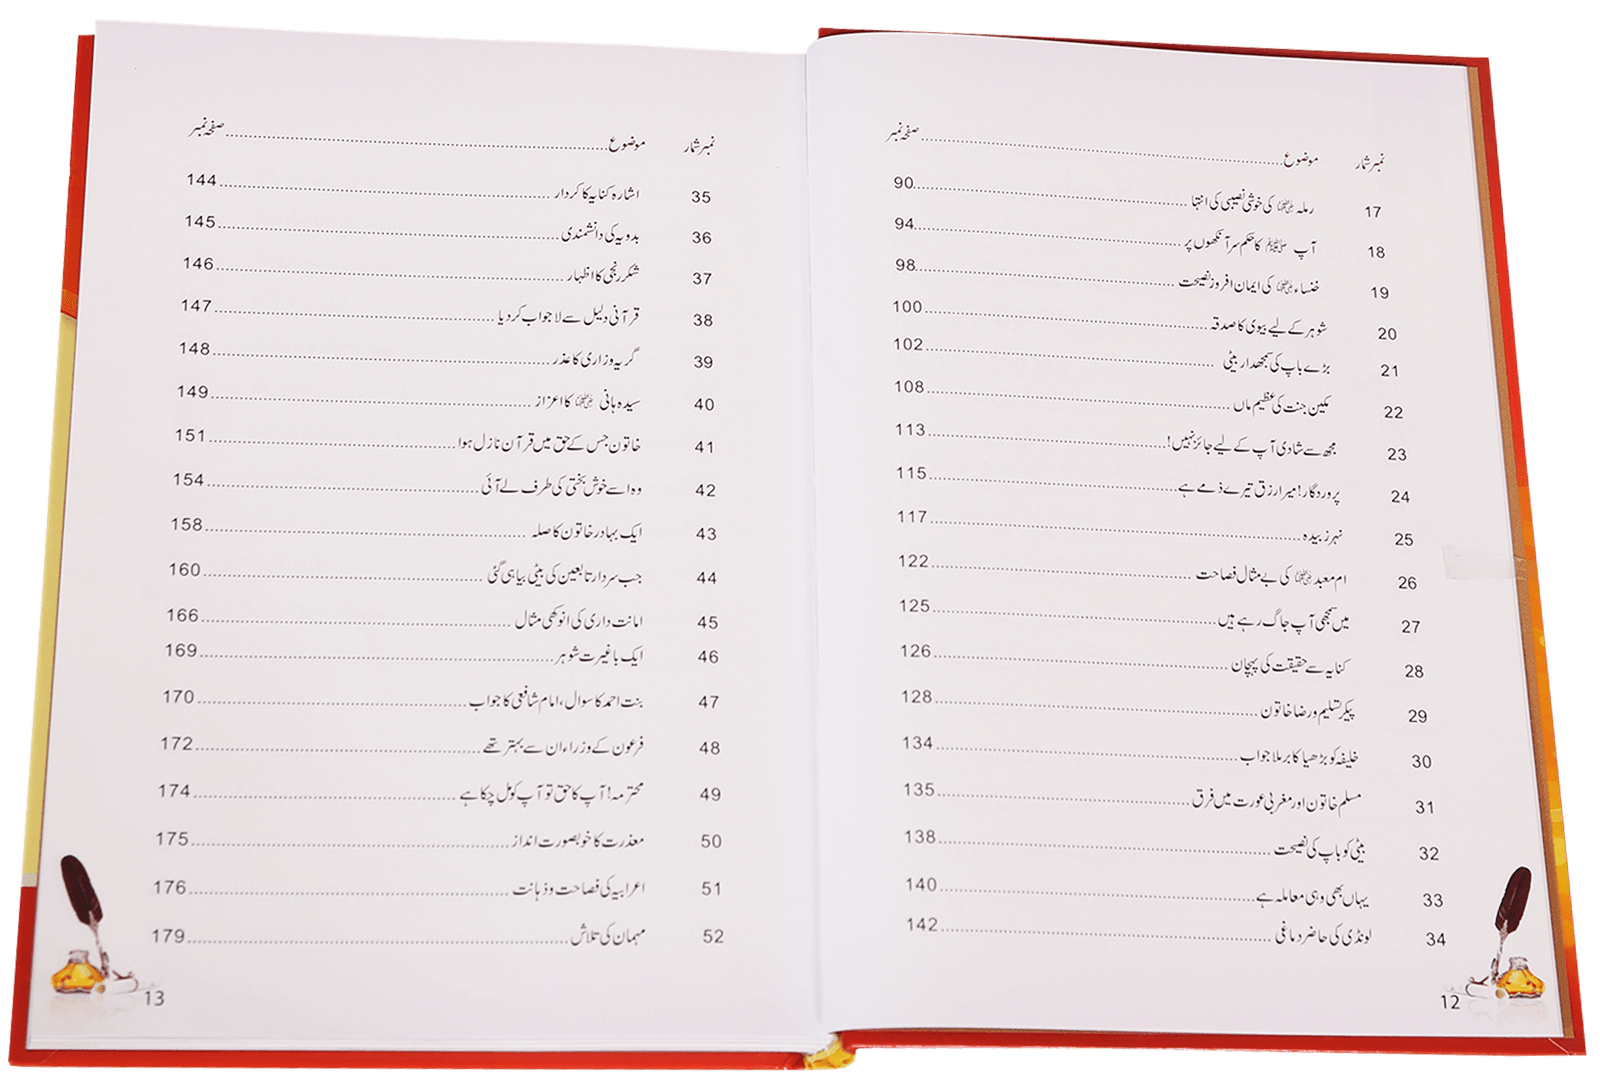 نمبر شمار موضوع صفحہ نمبر
17 رملہ رضی اللہ عنہا کی خوشی نصیبی کی انتہا 90
18 آپ ﷺ کا حکم سر آنکھوں پر 94
19 خنساء رضی اللہ عنہا کی ایمان افروز نصیحت 98
20 شوہر کے لیے بیوی کا صدقہ 100
21 بڑے باپ کی سمجھدار بیٹی 102
22 مکین جنت کی عظیم ماں 108
23 مجھ سے شادی آپ کے لیے جائز نہیں! 113
24 پروردگار! میرا رزق تیرے ذمے ہے 115
25 نہر زبیدہ 117
26 ام معبد رضی اللہ عنہا کی بے مثال فصاحت 122
27 میں سمجھی آپ جاگ رہے ہیں 125
28 کنایہ سے حقیقت کی پہچان 126
29 پیکر تسلیم و رضا خاتون 128
30 خلیفہ کو بڑھیا کا برملا جواب 134
31 مسلم خاتون اور مغربی عورت میں فرق 135
32 بیٹی کو باپ کی نصیحت 138
33 یہاں بھی وہی معاملہ ہے 140
34 لونڈی کی حاضر دماغی 142
12
نمبر شمار موضوع صفحہ نمبر
35 اشارہ کنایہ کا کردار 144
36 بدویہ کی دانشمندی 145
37 شکر رنجی کا اظہار 146
38 قرآنی دلیل سے لاجواب کر دیا 147
39 گریہ و زاری کا عذر 148
40 سیدہ ہانی رضی اللہ عنہا کا اعزاز 149
41 خاتون جس کے حق میں قرآن نازل ہوا 151
42 وہ اسے خوش بختی کی طرف لے آئی 154
43 ایک بہادر خاتون کا صلہ 158
44 جب سردار تابعین کی بیٹی بیاہی گئی 160
45 امانت داری کی انوکھی مثال 166
46 ایک باغیرت شوہر 169
47 بنت احمد کا سوال، امام شافعی کا جواب 170
48 فرعون کے وزراء ان سے بہتر تھے 172
49 محترمہ! آپ کا حق تو آپ کو مل چکا ہے 174
50 معذرت کا خوبصورت انداز 175
51 اعرابیہ کی فصاحت و ذہانت 176
52 مہمان کی تلاش 179
13